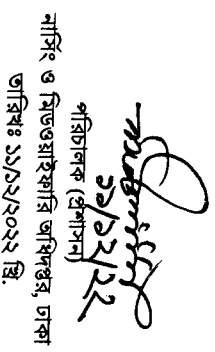 ১১/১২/২২
পরিচালক (প্রশাসন)
নার্সিং ও মিডওয়াইফারি অধিদপ্তর, ঢাকা
তারিখঃ ১১/১২/২০২২ খ্রি.